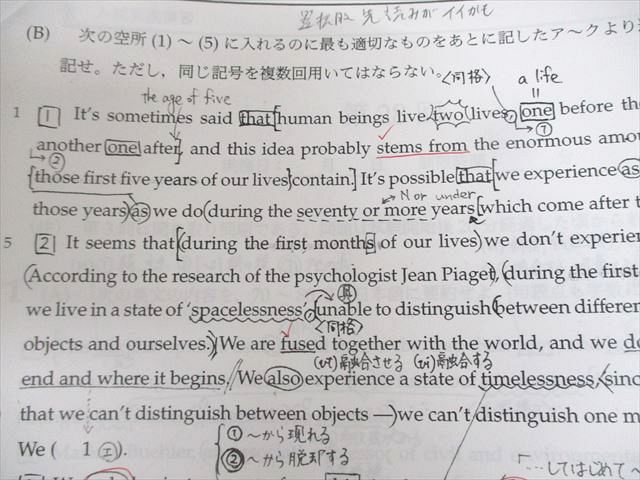 選択肢先読みがイイかも
(B) 次の空所 (1) ～ (5) に入れるのに最も適切なものをあとに記したア～クより
記せ。ただし，同じ記号を複数回用いてはならない。
〈同格〉 a life
the age of five
1 [1] It's sometimes said that human beings live two lives, one before the
⑦
another one after, and this idea probably stems from the enormous amo
②
those first five years of our lives contain. It's possible that we experience as
N or under
those years as we do during the seventy or more years which come after t
5 [2] It seems that during the first months of our lives we don't experien
According to the research of the psychologist Jean Piaget, during the first
we live in a state of 'spacelessness', unable to distinguish between differen
〈同格〉
objects and ourselves. We are fused together with the world, and we do
(vt) 融合させる (vi) 融合する
end and where it begins. We also experience a state of timelessness, sinc
that we can't distinguish between objects — we can't distinguish one m
We ( 1 エ ).
① ～から現れる
② ～から脱却する
…してはじめて～